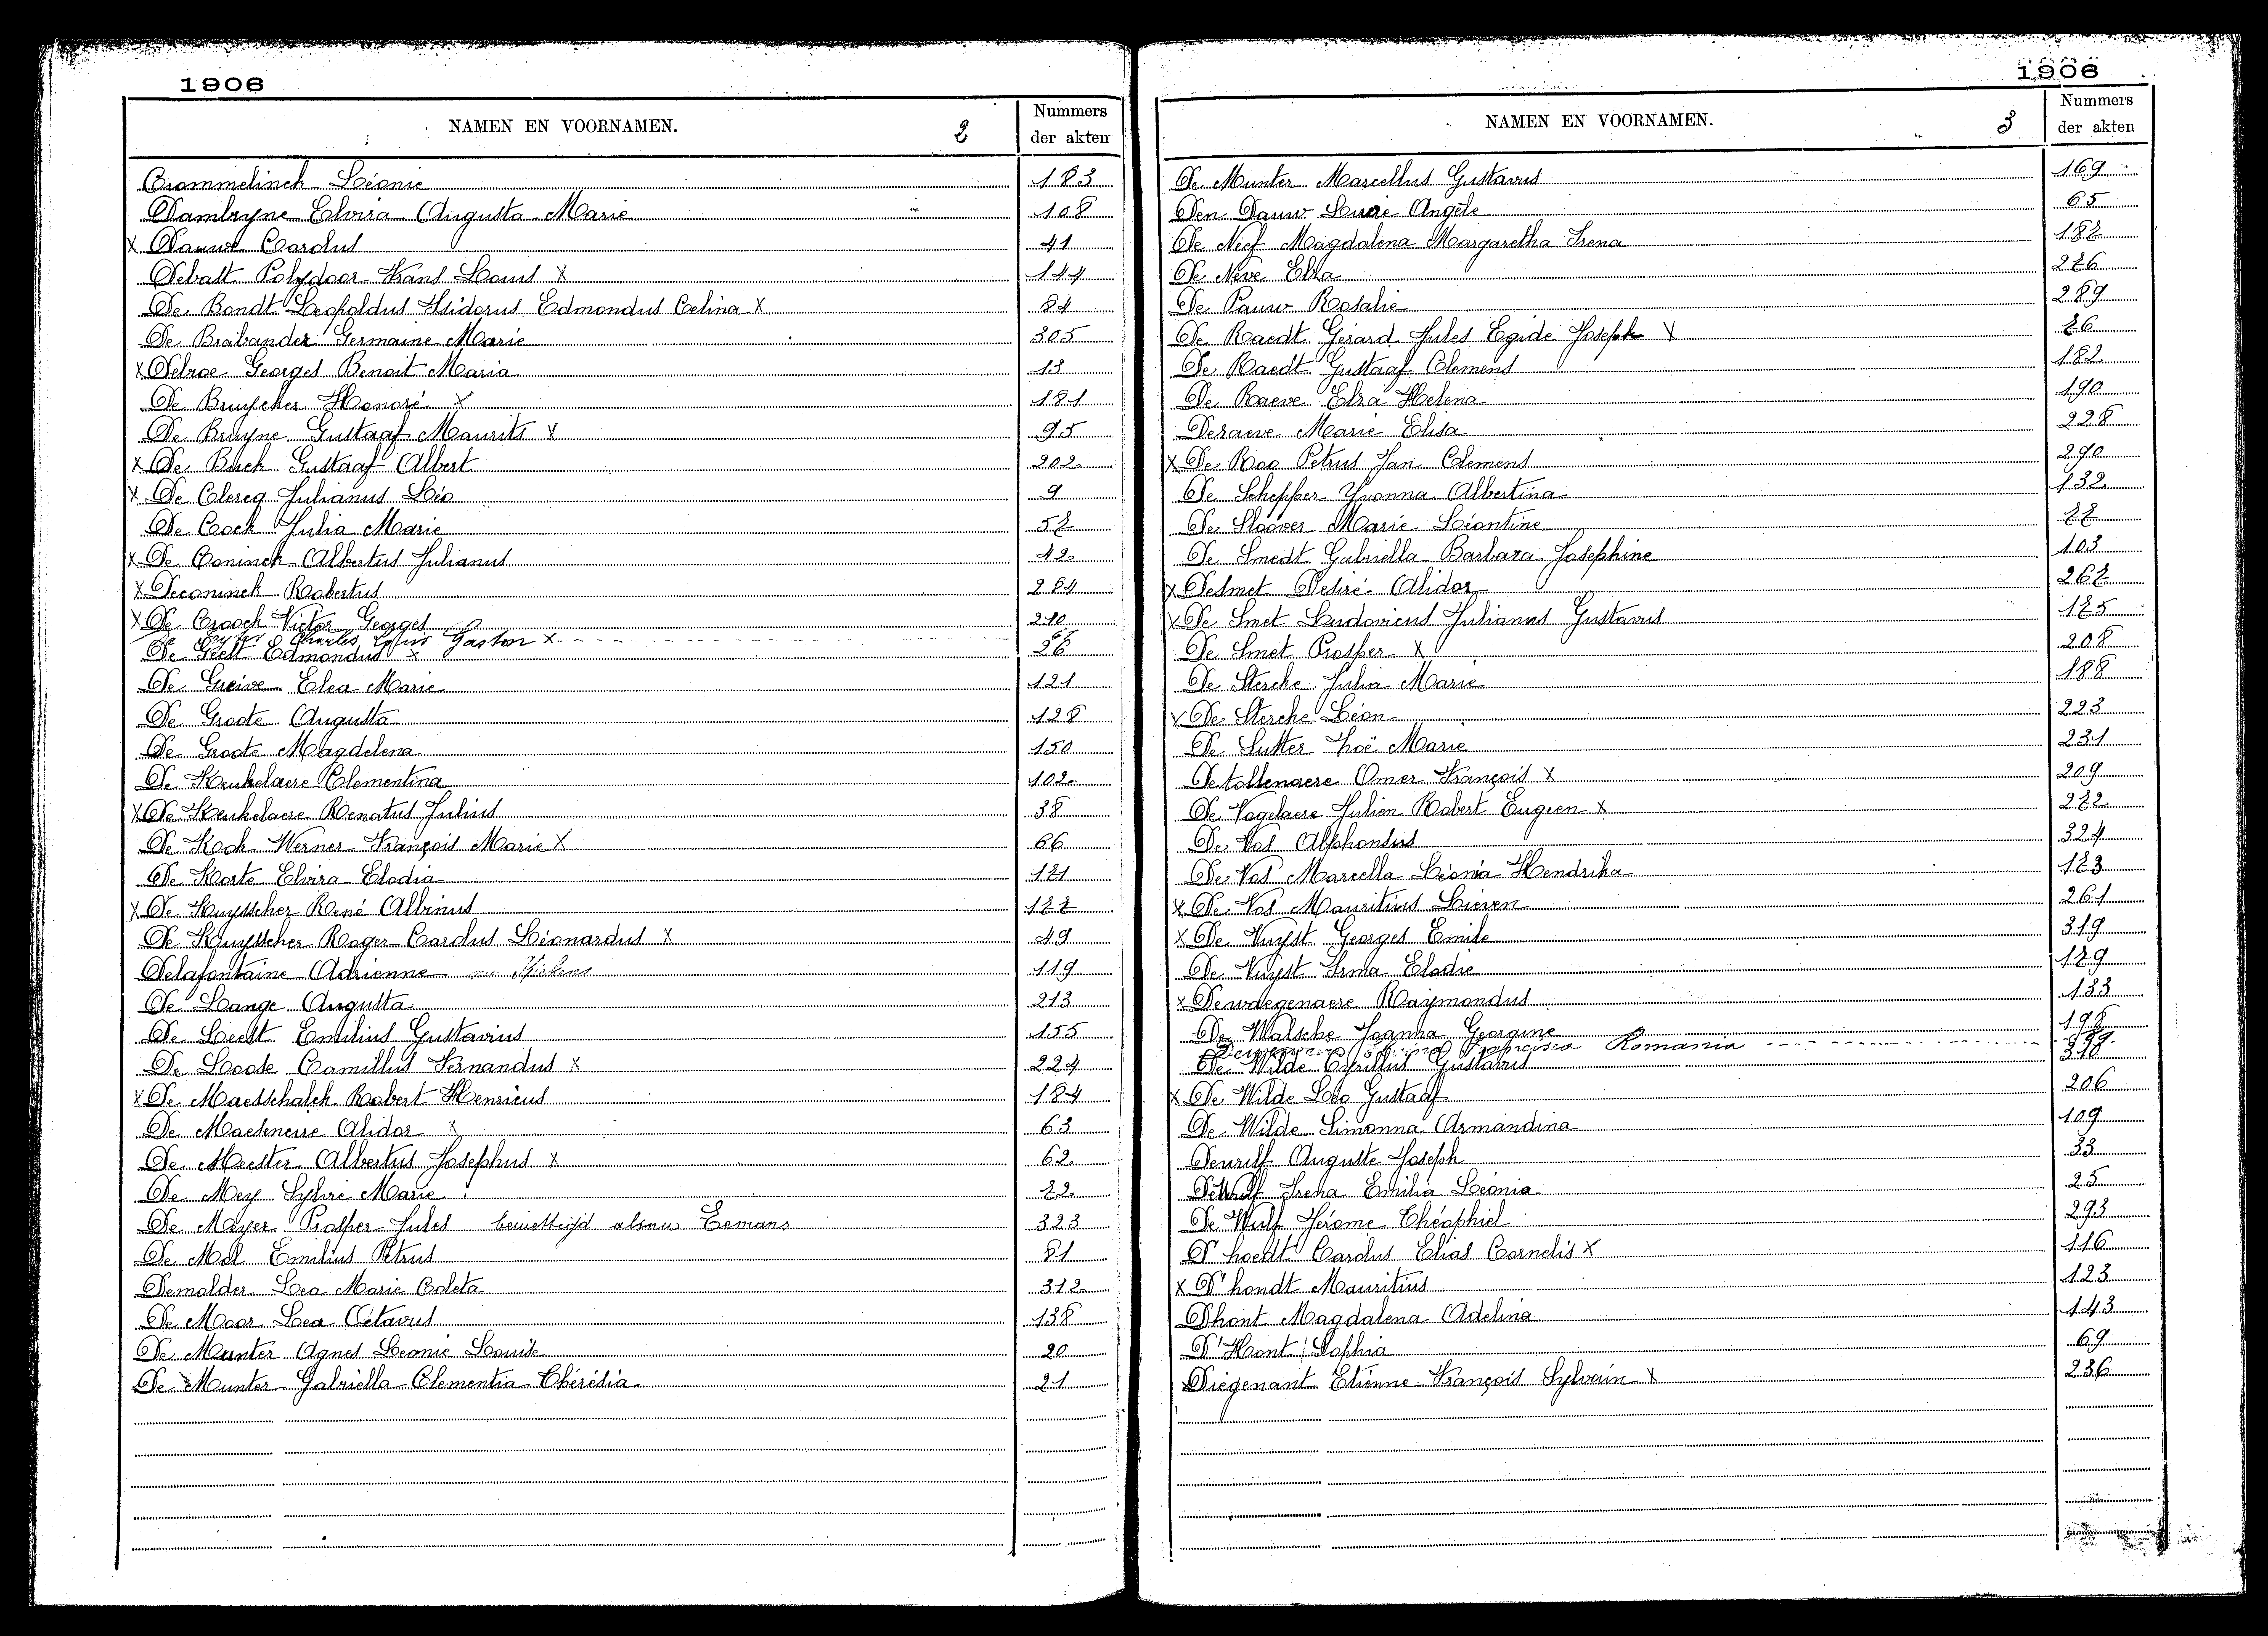 1906
NAMEN EN VOORNAMEN. 2 Nummers der akten
Crommelinck Léonie 183
Dambryne Elvira Augusta Marie 108
X Dauwe Carolus 41
Debast Polydoor Frans Louis X 144
De Bondt Leopoldus Isidorus Edmondus Celina X 84
De Brabander Germaine Marie 305
X Debroe Georges Benoit Maria 13
De Bruycker Honoré X 181
De Bruyne Gustaaf Maurits X 95
X De Buck Gustaaf Albert 202
X De Clercq Julianus Léo 9
De Cock Julia Marie 57
X De Coninck Albertus Julianus 42
X Deconinck Robertus 284
X De Croock Victor Georges 210
De Charles Louis Gaston X
De Geest Edmondus X 26
De Greive Elea Marie 121
De Groote Augusta 128
De Groote Magdelena 150
De Keukelaere Clementina 102
X De Keukelaere Renatus Julius 38
De Kock Werner François Marie X 66
De Korte Elvira Elodia 171
X De Kuysscher René Albinus 177
De Kuysscher Roger Carolus Léonardus X 49
Delafontaine Adrienne 119
De Lange Augusta 213
De Leest Emilius Gustavius 155
De Loose Camillus Fernandus X 224
X De Maesschalck Robert Henricus 184
De Maeseneire Alidor X 63
De Meester Albertus Josephus X 62
De Mey Sylvie Marie 72
De Meyer Prosper Jules bewettigd alsnu Eemans 323
De Mol Emilius Petrus 81
Demolder Lea Marie Coleta 312
De Moor Leo Octavus 138
De Munter Agnes Leonie Louise 20
De Munter Gabriella Clementia Thérésia 21
1906
NAMEN EN VOORNAMEN. 3 Nummers der akten
De Munter Marcellus Gustavus 169
Den Dauw Lucie Angèle 65
De Neef Magdalena Margaretha Irena 187
De Neve Elza 276
De Pauw Rosalie 289
De Raedt Gérard Jules Egide Joseph X 76
De Raedt Gustaaf Clemens 182
De Raeve Elza Helena 190
Deraeve Marie Elisa 228
X De Roo Petrus Jan Clemens 290
De Schepper Yvonna Albertina 132
De Sloover Marie Léontine 77
De Smedt Gabriella Barbara Josephine 103
X Desmet Desiré Alidor 267
X De Smet Ludovicus Julianus Gustavus 175
De Smet Prosper X 208
De Stercke Julia Marie 188
X De Stercke Léon 223
De Sutter Zoë Marie 231
Detollenaere Omer François X 209
De Vogelaere Julien Robert Eugeen X 272
De Vos Alphonsus 324
De Vos Marcella Léonia Hendrika 173
X De Vos Mauritius Lieven 261
X De Vuyst Georges Emile 319
De Vuyst Irma Elodie 179
X Dewaegenaere Raymondus 133
De Walsche Joanna Georgine 198
Romania
De Wilde Cyrillus Gustavus
X De Wilde Leo Gustaaf 206
De Wilde Simonna Armandina 109
Dewulf Auguste Joseph 33
Dewulf Irena Emilia Léonia 25
De Wulf Jérome Théophiel 293
D'hoedt Carolus Elias Cornelis X 116
X D'hondt Mauritius 123
Dhont Magdalena Adelina 143
D'Hont Sophia 69
Diegenant Etienne François Sylvain X 236